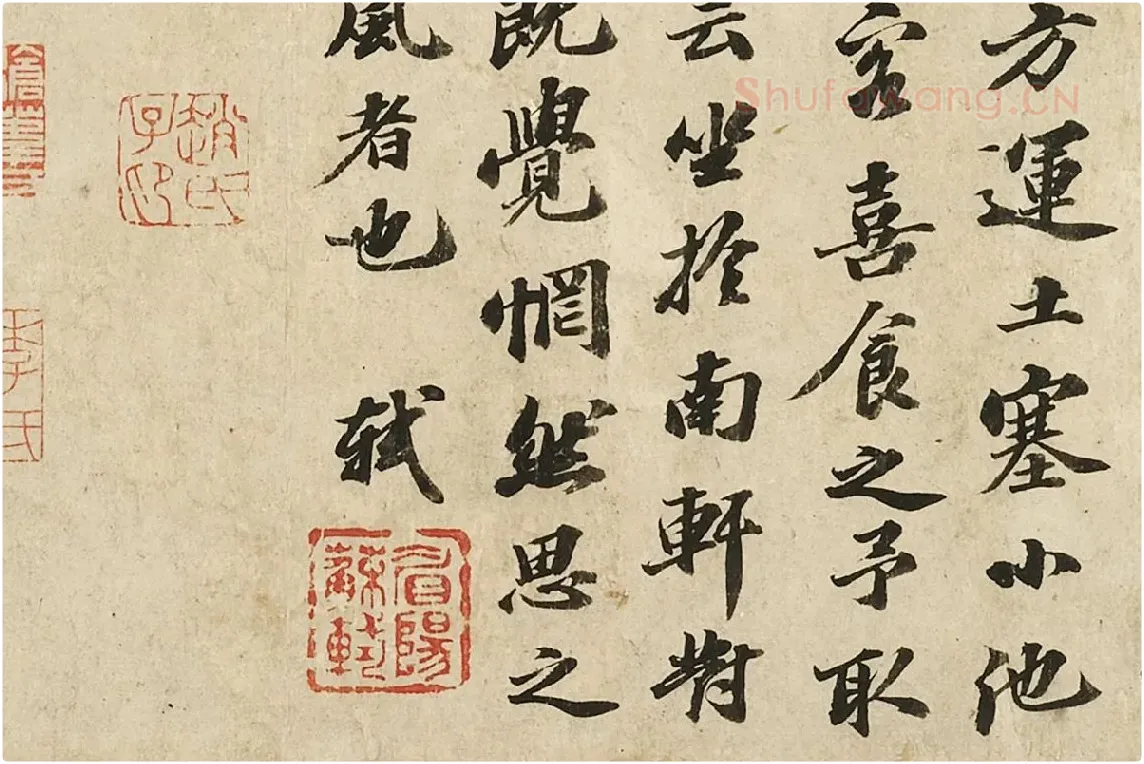 方運土塞小池
客喜食之予取
云坐於南軒對
既覺惘然思之
風者也 軾
眉陽蘇軾
趙氏子昂
Shufawang.CN